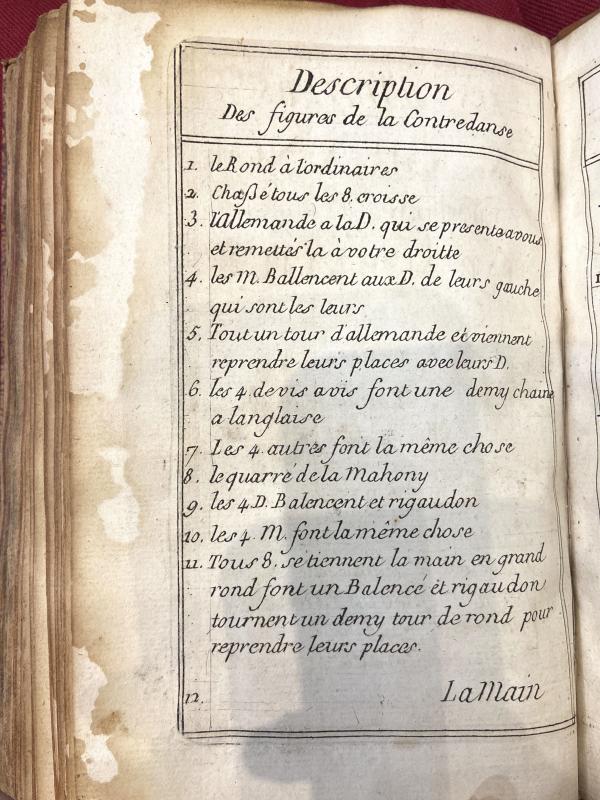 Description
Des figures de la Contredanse
1. le Rond à l'ordinaires
2. Chaßé tous les 8. croisse
3. l'allemande a la D. qui se presente a vous
et remettés la à votre droitte
4. les M. Ballencent aux D. de leurs gauche
qui sont les leurs
5. Tout un tour d'allemande et viennent
reprendre leurs places avec leurs D.
6. les 4. de vis a vis font une demy chaine
a langlaise
7. Les 4. autres font la même chose
8. le quarré de la Mahony
9. les 4. D. Balencent et rigaudon
10. les 4. M. font la même chose
11. Tous 8. se tiennent la main en grand
rond font un Balencé et rigaudon
tournent un demy tour de rond pour
reprendre leurs places.
12. La Main